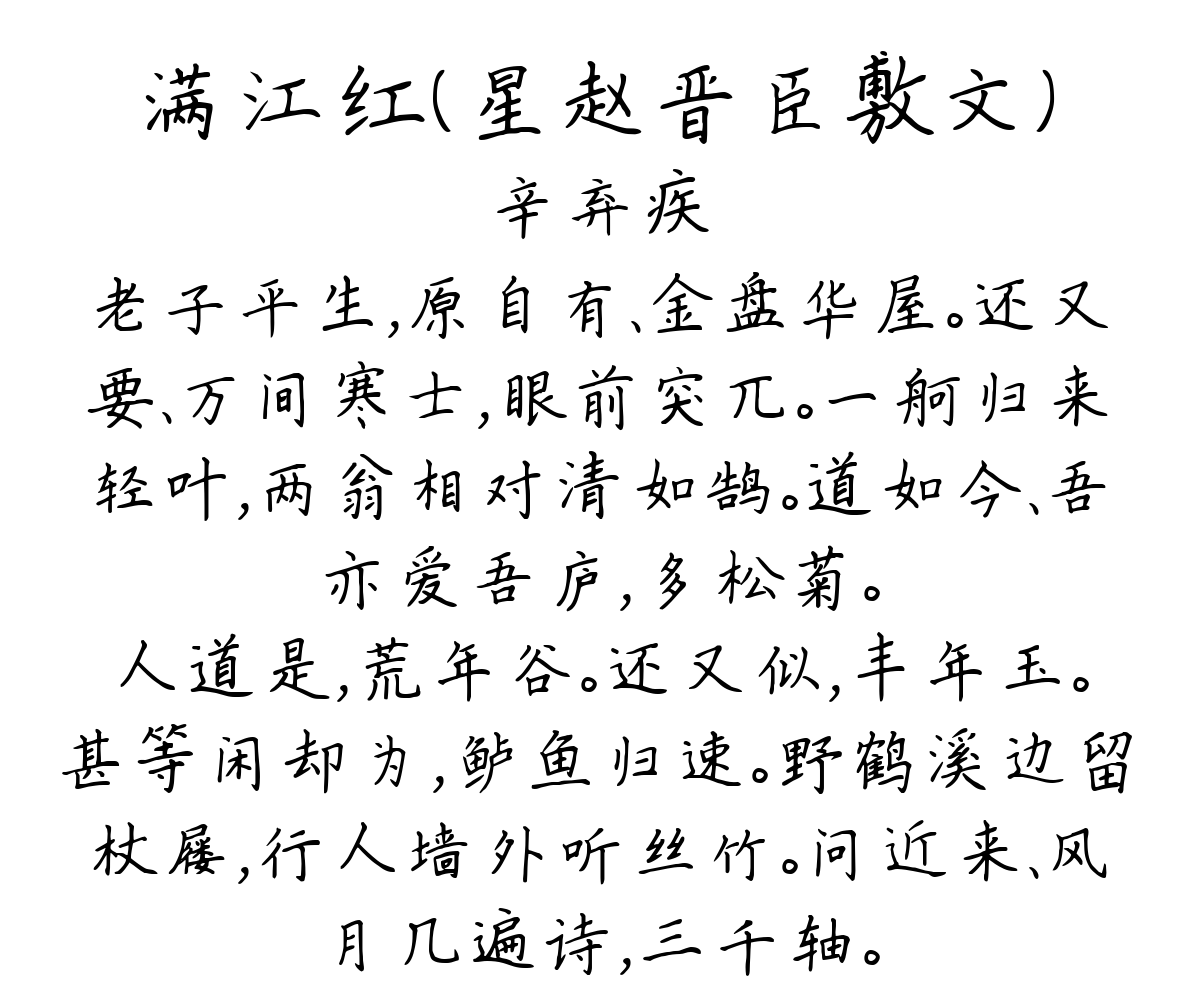 满江红(星赵晋臣敷文)
辛弃疾
老子平生,原自有、金盘华屋。还又
要、万间寒士,眼前突兀。一舸归来
轻叶,两翁相对清如鹄。道如今、吾
亦爱吾庐,多松菊。
人道是,荒年谷。还又似,丰年玉。
甚等闲却为,鲈鱼归速。野鹤溪边留
杖屦,行人墙外听丝竹。问近来、风
月几遍诗,三千轴。